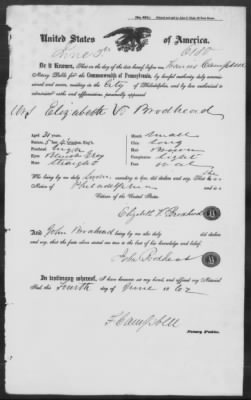 United States of America.
Be it Known, That on the day of the date hereof before me Francis Campbell
Notary Public for the Commonwealth of Pennsylvania, by lawful authority duly commis-
sioned and sworn, residing in the City of Philadelphia, and by law authorized to
administer oaths and affirmations personally appeared
Mrs Elizabeth Brodhead
Aged 31 years
Stature, 5
Forehead high
Eyes Blueish Grey
Nose straight
Mouth small
Chin long
Hair Brown
Complexion light
Face oval
Who being by me duly sworn according to law, did declare and say, That she
is a
Native of Philadelphia and is a
Citizen of the United States
Elizabeth Brodhead
And John Brodhead being by me also duly
did declare
and say, that the facts above stated are true to the best of his knowledge and belief.
John Brodhead
In testimony whereof, I have hereunto set my hand, and affixed my Notarial
Seal this fourth day of June
F Campbell
Notary Public.